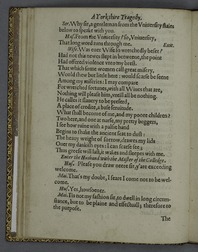 A Yorkshire Tragedy.
Ser. Why sir, a gentleman from the Vniuersity staies
below to speake with you.
Hus. From the Vniuersity? so, Vniuersity,
That long word runs through me. Exit.
Wif. Was euer wife so wretchedly beset?
Had not this newes stept in betweene, the point
Had offered violence vnto my brest.
That which some women call great misery,
Would shew but little heere: would scarce be seene
Among my miseries: I may compare
For wretched fortunes, with all wiues that are,
Nothing will please him, vntill all be nothing.
He calles it slauery to be preferd,
A place of credit, a base seruitude.
What shall become of me, and my poore children?
Two here, and one at nurse, my pretty beggers,
I see how ruine with a palsie hand
Begins to shake the
The heauy weight of sorrow, drawes my lids
Ouer my dankish eyes: I can scarse see;
Thus griefe will last, it wakes and sleepes with me.
Enter the Husband with the Master of the Colledge.
Hus. Please you draw neere sir, y'are exceeding
welcome.
Ma. That's my doubt, I feare I come not to be wel-
come.
Hus. Yes, howsoeuer.
Ma. Tis not my fashion sir, to dwell in long circum-
stance, but to be plaine and effectuall; therefore to
the purpose.
The